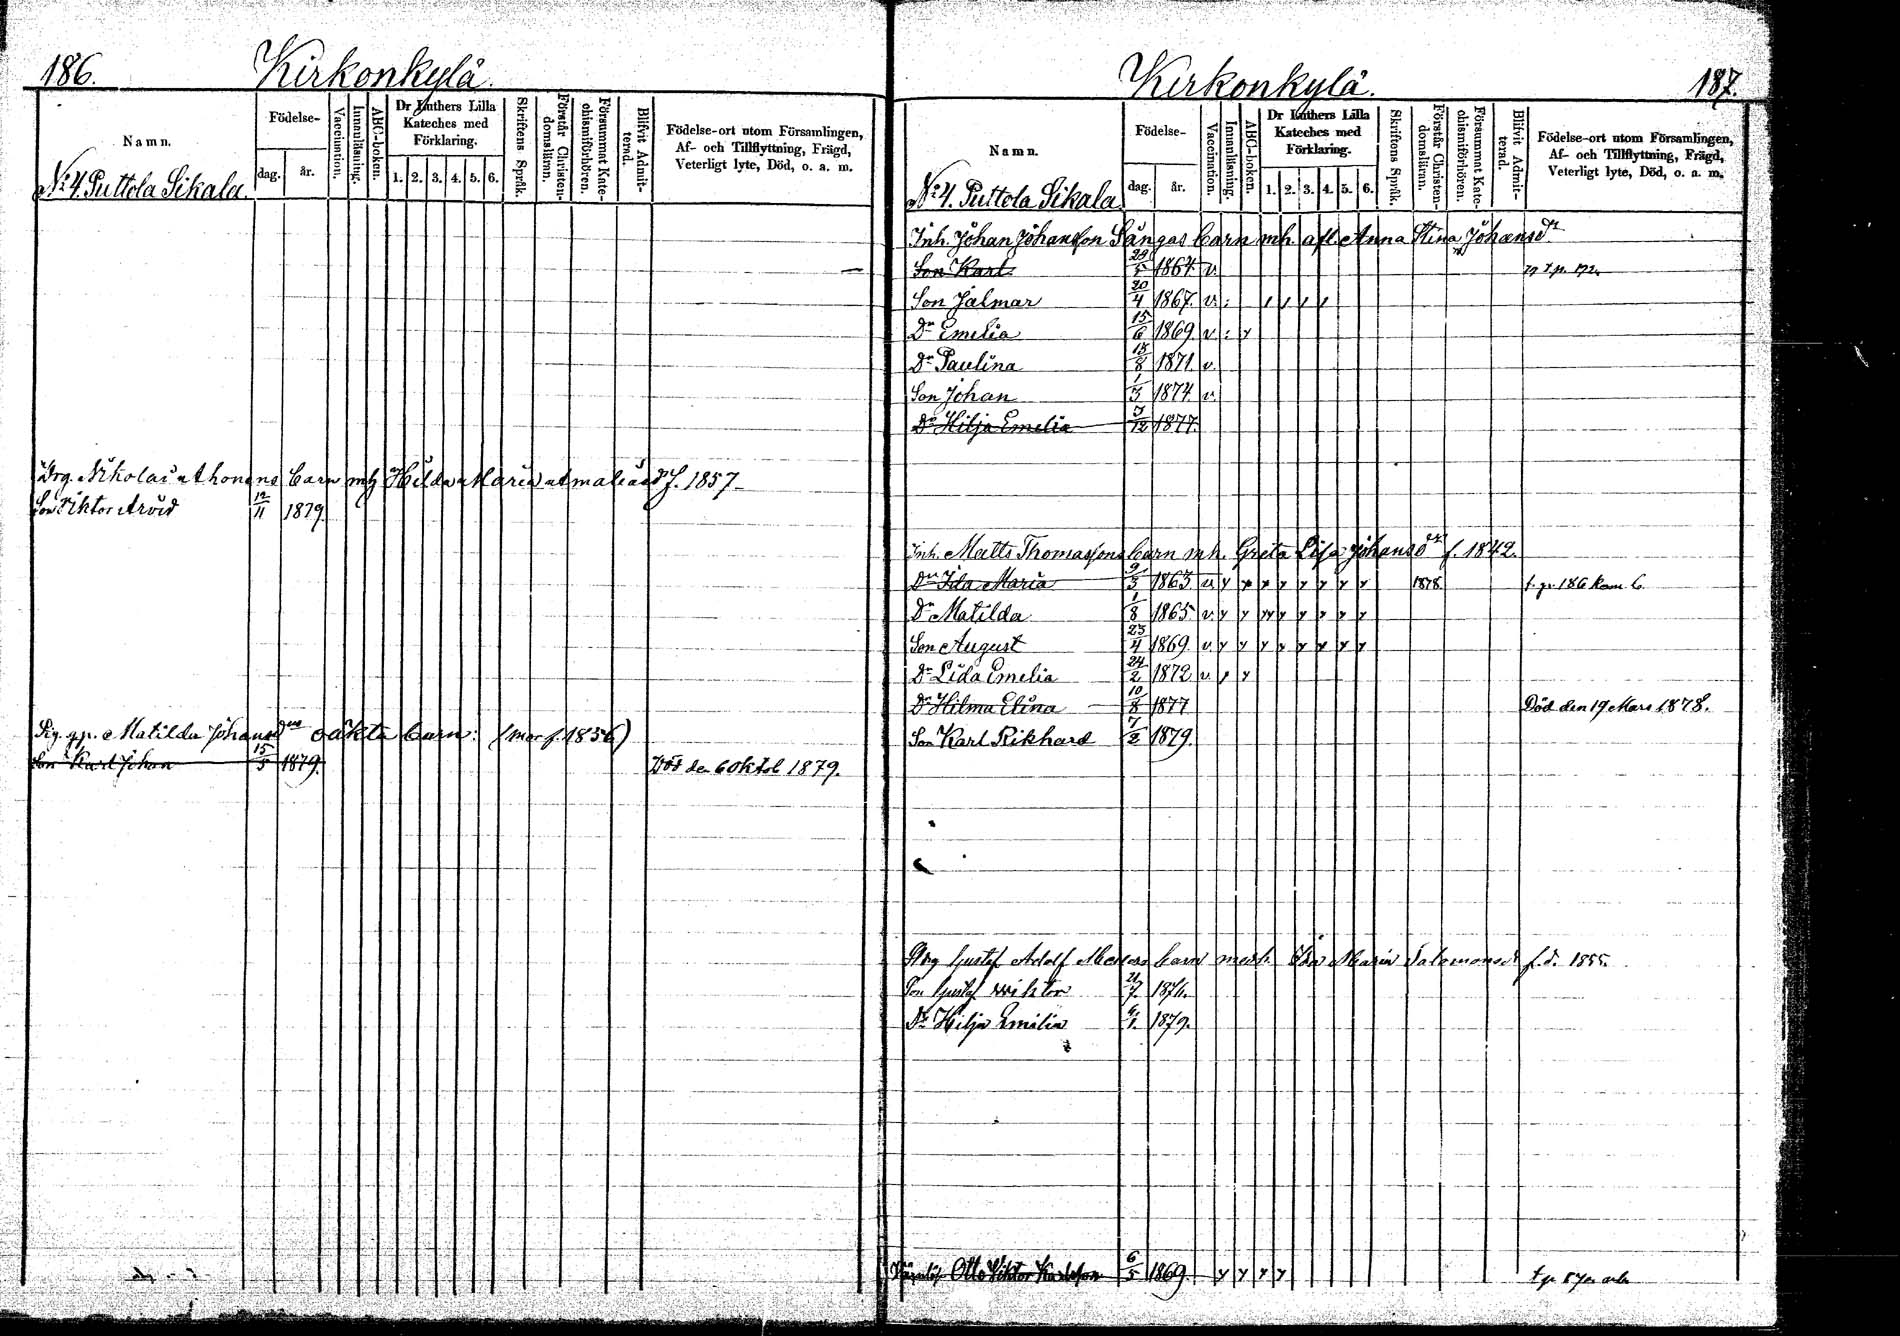 186.
Kirkonkylä.
Namn.
Födelse-
dag.
år.
Vaccination.
Innanläsning.
ABC-boken.
Dr Luthers Lilla
Kateches med
Förklaring.
1. 2. 3. 4. 5. 6.
Skriftens Språk.
Förstår Christen-
domslären.
Försummat Kate-
chismiförhören.
Blifvit Admit-
terad.
Födelse-ort utom Församlingen,
Af- och Tillflyttning, Frägd,
Veterligt lyte, Död, o. a. m.
No 4. Puttola Sikala.
Nikolai Ahonens barn mh Hilda Maria Amaliasd f. 1857.
Son Viktor Arvid 12/11 1879.
Matilda Johansdrs oäkta barn: (mor f. 1856)
Son Karl Johan 15/5 1879. Död den 6 Oktob 1879.
187.
Kirkonkylä.
Namn.
Födelse-
dag.
år.
Vaccination.
Innanläsning.
ABC-boken.
Dr Luthers Lilla
Kateches med
Förklaring.
1. 2. 3. 4. 5. 6.
Skriftens Språk.
Förstår Christen-
domsläran.
Försummat Kate-
chismiförhören.
Blifvit Admit-
terad.
Födelse-ort utom Församlingen,
Af- och Tillflyttning, Frägd,
Veterligt lyte, Död, o. a. m.
No 4. Puttola Sikala
Inh. Johan Johansson Sångas barn mh. afl. Anna Stina Johansdr
Son Karl 29/5 1864. v.
Son Jalmar 20/4 1867. v.
Dr Emelia 15/6 1869. v
Dr Paulina 18/8 1871. v.
Son Johan 1/3 1874. v.
Dr Hilja Emelia 7/12 1877.
Inh. Matts Thomassons barn mh. Greta Lisa Johansdr f. 1842.
Dr Ida Maria 9/3 1863 v. 1878. t. p. 186
Dr Matilda 1/8 1865 v.
Son August 23/4 1869. v.
Dr Lida Emelia 24/2 1872 v.
Dr Hilma Elina 10/8 1877 Död den 19 Mars 1878.
Son Karl Rikhard 7/2 1879.
Gustaf Adolf barn med h. Ida Maria Salomonsdr f.d. 1855.
Son Gustaf Wiktor 21/7. 1876.
Dr Hilja Emilia 1879.
Otto Viktor Karlsson 6/5 1869.